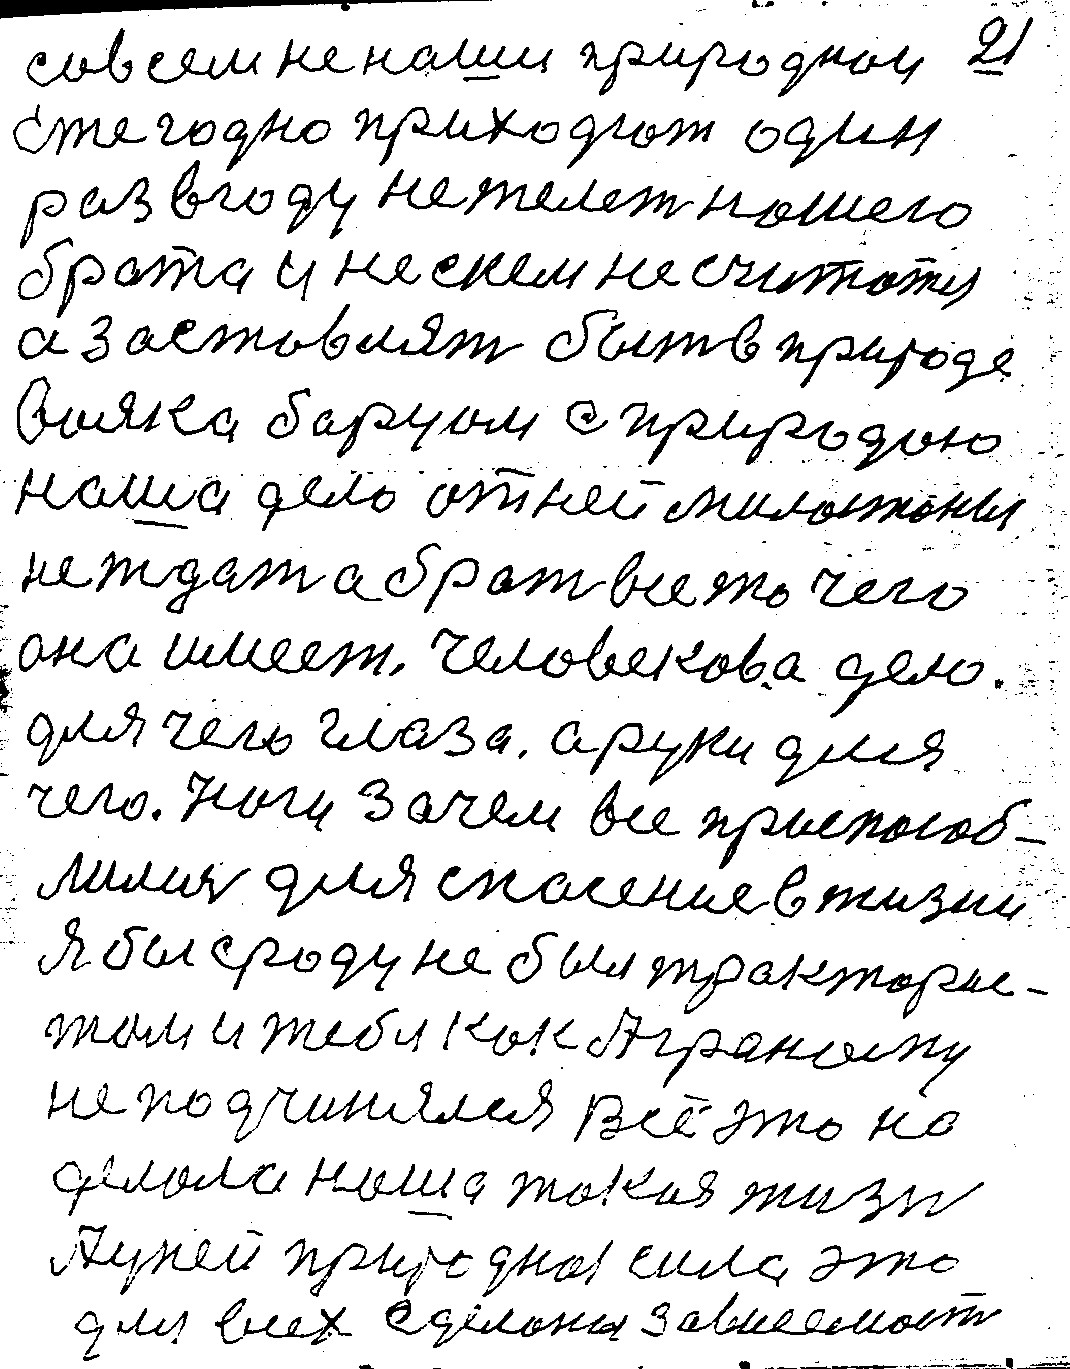 совсем не наши природнои 21
Ежегодно приходют один
раз вгоду нежелет нашего
брата и не скем не считаются
а заставлят быть в природе
Вояка барцом с природою
наша дело от ней милостоны
не ждат а брат все то чего
она имеет. Человекова дело.
для чего глаза. а руки для
чего. Ноги зачем все приспособ-
лилия для спасение в жизни
Я бы сроду не был трактори-
стом и тебя как Аграному
не подчинялся Всё это на
делола наша такая жизн
А у ней природная сила это
для всех сделоны зависемост